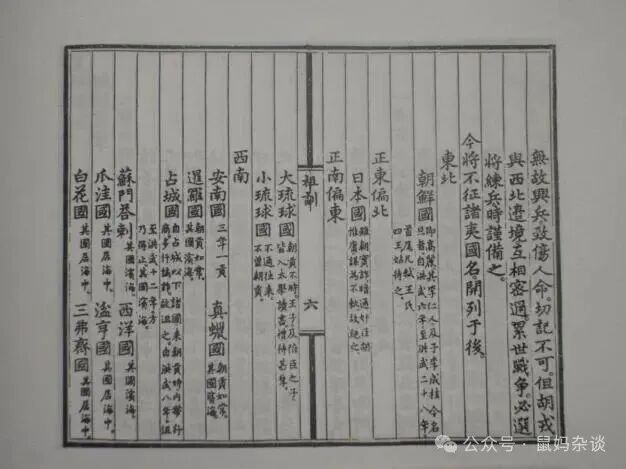 無故興兵致傷人命切記不可但胡戎
與西北邊境互相密邇累世戰爭必選
將練兵時謹備之
今將不征諸夷國名開列于後
東北
朝鮮國 即高麗其李仁人及子李成桂今名
旦者自洪武六年至洪武二十八年
首尾凡弒王氏
四王姑待之
正東偏北
日本國 雖朝實詐暗通奸臣胡
惟庸謀為不軌故絕之
正南偏東
大琉球國 朝貢不時王子及陪臣之子
皆入太學讀書禮待甚厚
小琉球國 不通往來
不曾朝貢
西南
安南國 三年一貢 真蠟國 朝貢如常
其國濱海
暹羅國 朝貢如常
其國濱海
占城國 自占城以下諸國來朝貢時內帶行
商多行譎詐故沮之自洪武八年沮
至洪武十二年方
乃得止其國濱海
蘇門荅剌 其國濱海 西洋國 其國濱海
爪洼國 其國居海中 湓亨國 其國居海中
白花國 其國居海中 三弗齊國 其國居海中
祖訓
六
公众号·鼠妈杂谈